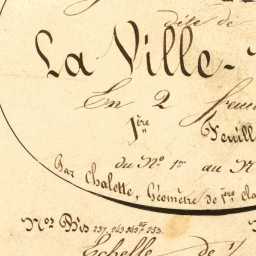 dite de
La Ville-
En 2 feui
1ère Feuill
du No. 1er au N
Par Chalette, Géomètre de 1ère Cla
Nos. Bis 237. 243
Echelle de 1